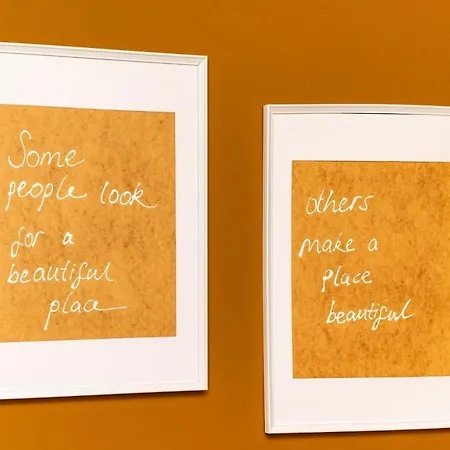 Some
people look
for a
beautiful
place
others
make a
place
beautiful